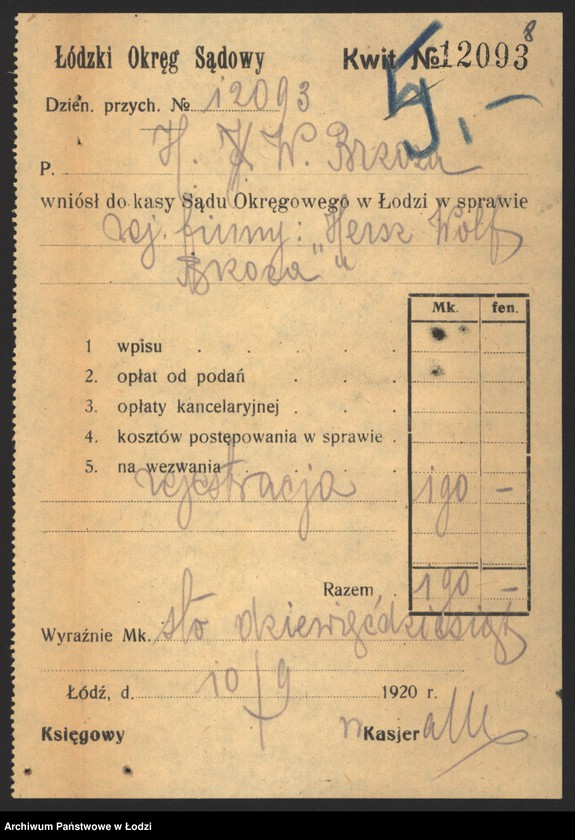 8
Łódzki Okręg Sądowy Kwit № 12093
5,—
Dzien. przych. № 12093
P. H. W. Brkoza
wniósł do kasy Sądu Okręgowego w Łodzi w sprawie
rej. firmy: „Hersz Wolf
Brkoza"
Mk. fen.
1 wpisu
2. opłat od podań
3. opłaty kancelaryjnej
4. kosztów postępowania w sprawie
5. na wezwania
rejestracja 190 —
Razem 190 —
Wyraźnie Mk. sto dziewięćdziesiąt
Łódź, d. 10/9 1920 r.
Księgowy Kasjer
Archiwum Państwowe w Łodzi